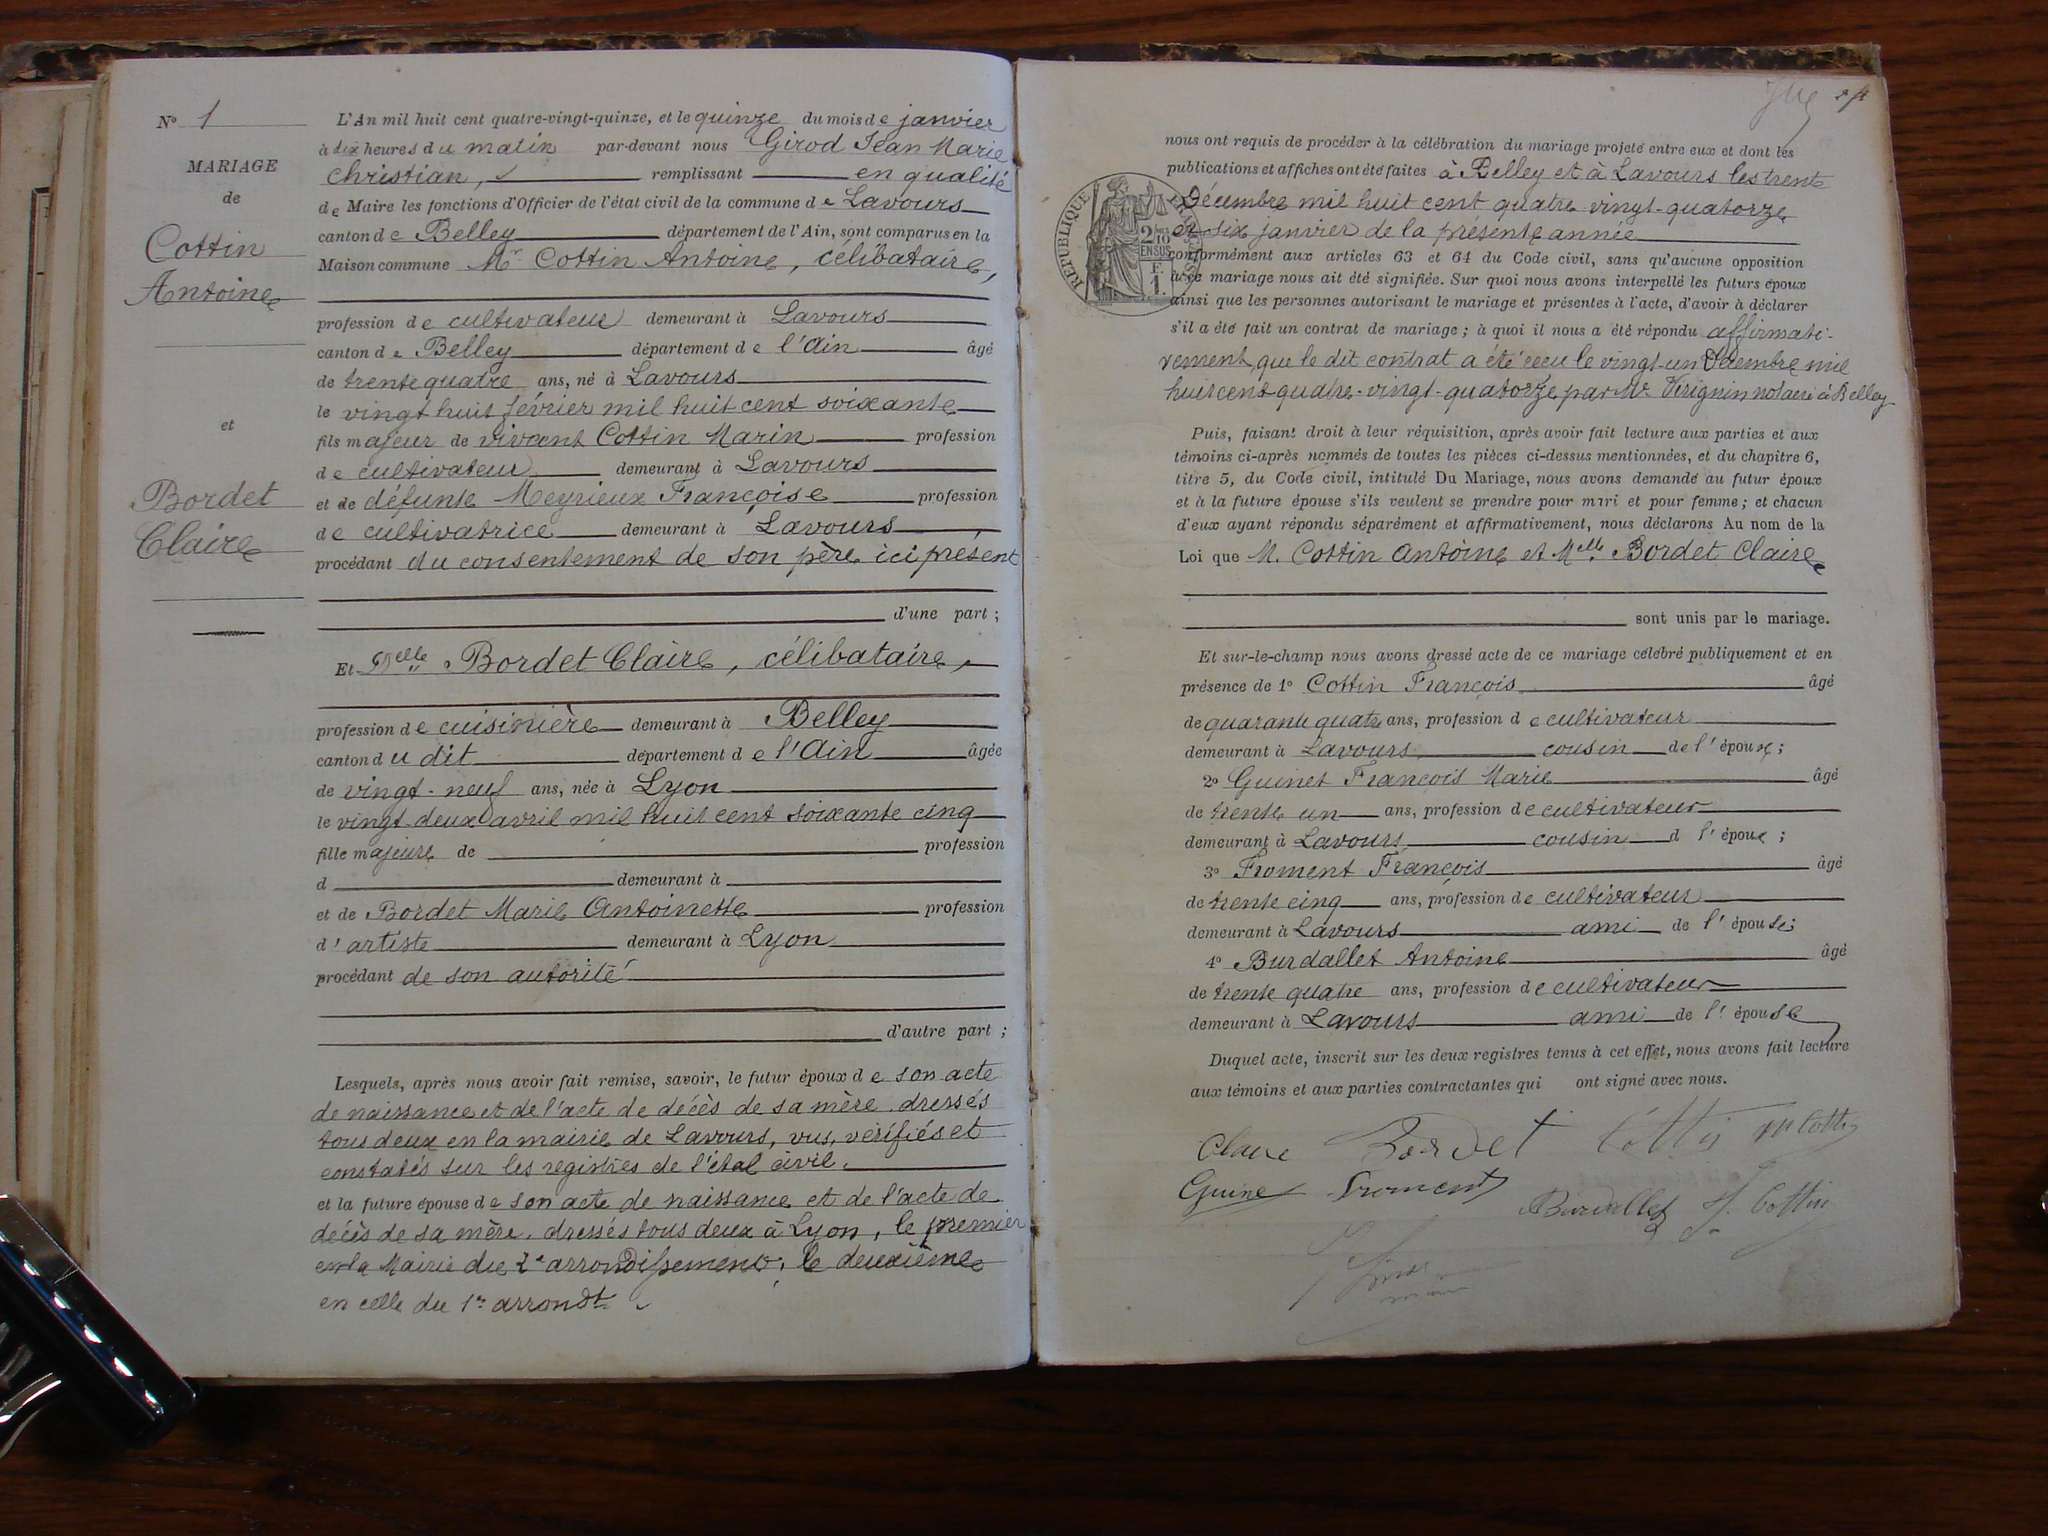 N° 1
MARIAGE
de
Cottin
Antoine
et
Bordet
Claire
L'An mil huit cent quatre-vingt-quinze, et le quinze du mois de janvier
à dix heures du matin par-devant nous Girod Jean Marie
Christian, remplissant en qualité
de Maire les fonctions d'Officier de l'état civil de la commune de Lavours
canton de Belley département de l'Ain, sont comparus en la
Maison commune Mr Cottin Antoine, célibataire,
profession de cultivateur demeurant à Lavours
canton de Belley département de l'Ain âgé
de trente quatre ans, né à Lavours
le vingt huit février mil huit cent soixante
fils majeur de vivant Cottin Marin profession
de cultivateur demeurant à Lavours
et de défunte Meyrieux Françoise profession
de cultivatrice demeurant à Lavours
procédant du consentement de son père ici présent
d'une part ;
Et Delle Bordet Claire, célibataire,
profession de cuisinière demeurant à Belley
canton du dit département de l'Ain âgée
de vingt-neuf ans, née à Lyon
le vingt deux avril mil huit cent soixante cinq
fille majeure de profession
d demeurant à
et de Bordet Marie Antoinette profession
d'artiste demeurant à Lyon
procédant de son autorité
d'autre part ;
Lesquels, après nous avoir fait remise, savoir, le futur époux de son acte
de naissance et de l'acte de décès de sa mère, dressés
tous deux en la mairie de Lavours, vus, vérifiés et
constatés sur les registres de l'état civil.
et la future épouse de son acte de naissance et de l'acte de
décès de sa mère, dressés tous deux à Lyon, le premier
en la Mairie du 2e arrondissement, le deuxième
en celle du 1er arrondt.
nous ont requis de procéder à la célébration du mariage projeté entre eux et dont les
publications et affiches ont été faites à Belley et à Lavours les trente
Décembre mil huit cent quatre vingt-quatorze
et six janvier de la présente année
conformément aux articles 63 et 64 du Code civil, sans qu'aucune opposition
à ce mariage nous ait été signifiée. Sur quoi nous avons interpellé les futurs époux
ainsi que les personnes autorisant le mariage et présentes à l'acte, d'avoir à déclarer
s'il a été fait un contrat de mariage ; à quoi il nous a été répondu affirmati-
vement que le dit contrat a été recu le vingt-un Décembre mil
huit cent quatre-vingt-quatorze par Me Virignin notaire à Belley
Puis, faisant droit à leur réquisition, après avoir fait lecture aux parties et aux
témoins ci-après nommés de toutes les pièces ci-dessus mentionnées, et du chapitre 6,
titre 5, du Code civil, intitulé Du Mariage, nous avons demandé au futur époux
et à la future épouse s'ils veulent se prendre pour mari et pour femme ; et chacun
d'eux ayant répondu séparément et affirmativement, nous déclarons Au nom de la
Loi que M. Cottin Antoine et Melle Bordet Claire
sont unis par le mariage.
Et sur-le-champ nous avons dressé acte de ce mariage célébré publiquement et en
présence de 1° Cottin François âgé
de quarante quatre ans, profession de cultivateur
demeurant à Lavours cousin de l'époux ;
2° Guinet François Marie âgé
de trente un ans, profession de cultivateur
demeurant à Lavours cousin d l'époux ;
3° Froment François âgé
de trente cinq ans, profession de cultivateur
demeurant à Lavours ami de l'épouse ;
4° Burdallet Antoine âgé
de trente quatre ans, profession de cultivateur
demeurant à Lavours ami de l'épouse
Duquel acte, inscrit sur les deux registres tenus à cet effet, nous avons fait lecture
aux témoins et aux parties contractantes qui ont signé avec nous.
Claire Bordet Cottin M Cottin
Guinet Froment Burdallet F. Cottin